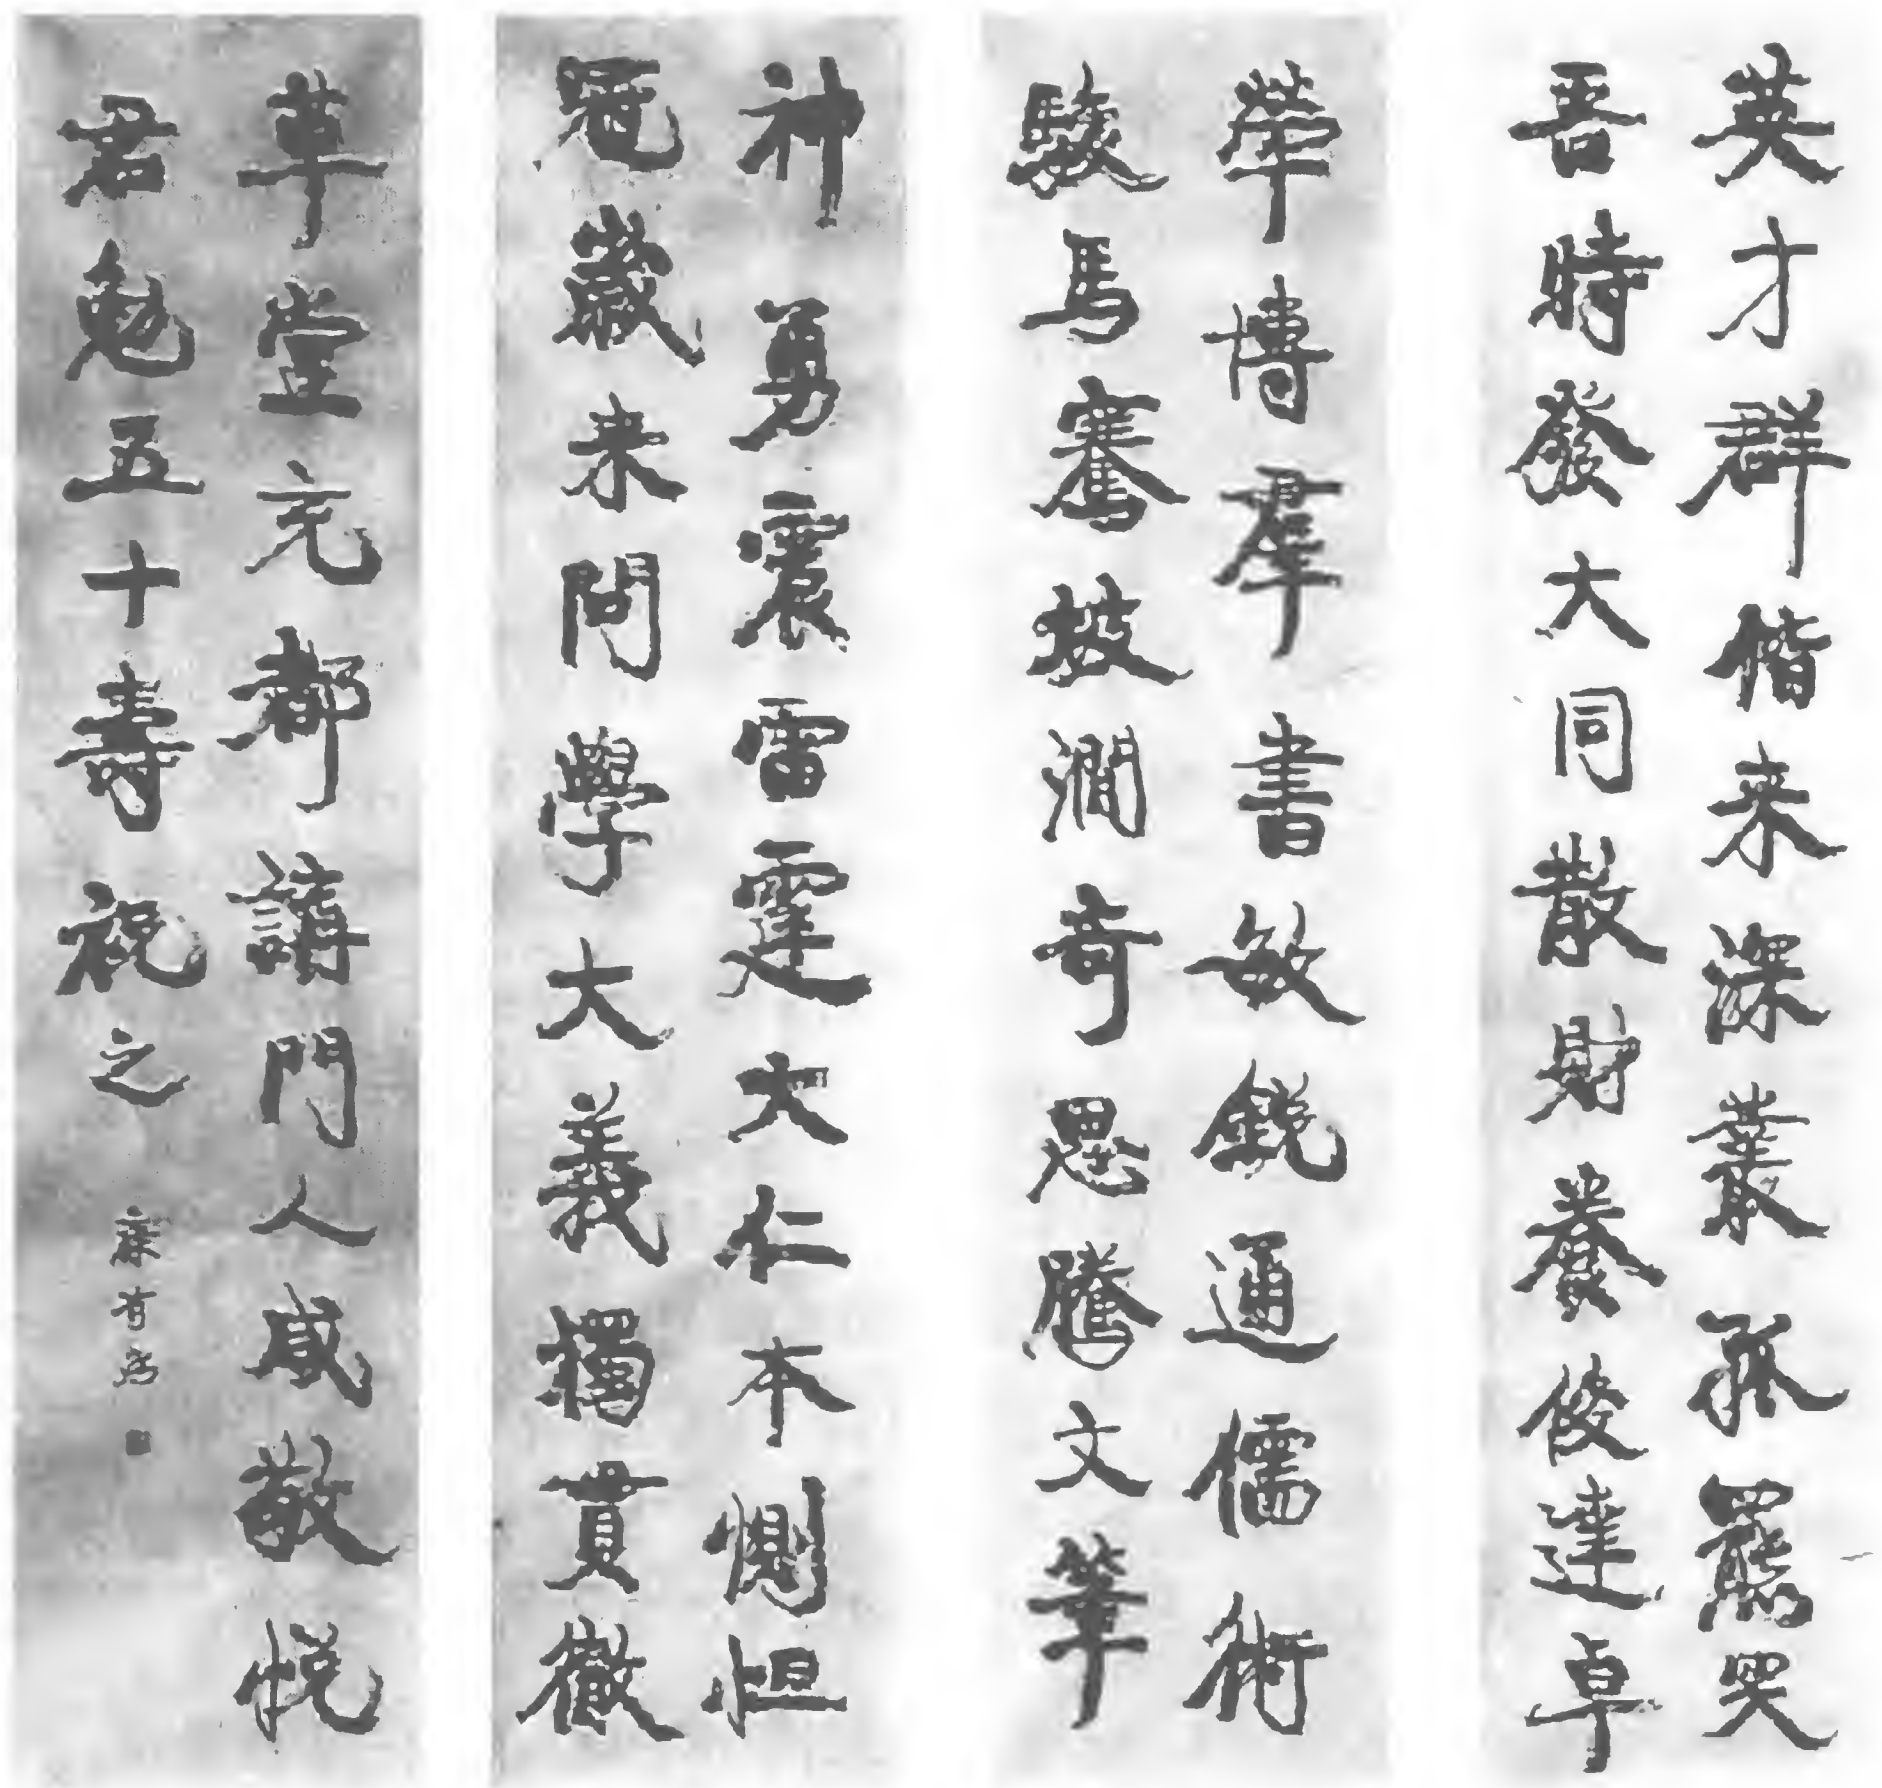 英才群偕来深叢孤羆哭
吾時發大同散財養俊達卓
犖博羣書敏銳通儒術
駿馬騫坡澗奇思騰文筆
神勇震雷霆大仁本惻怛
冠歲来問學大義獨貫徹
草堂充都講門人咸敬悅
君勉五十壽祝之
康有為